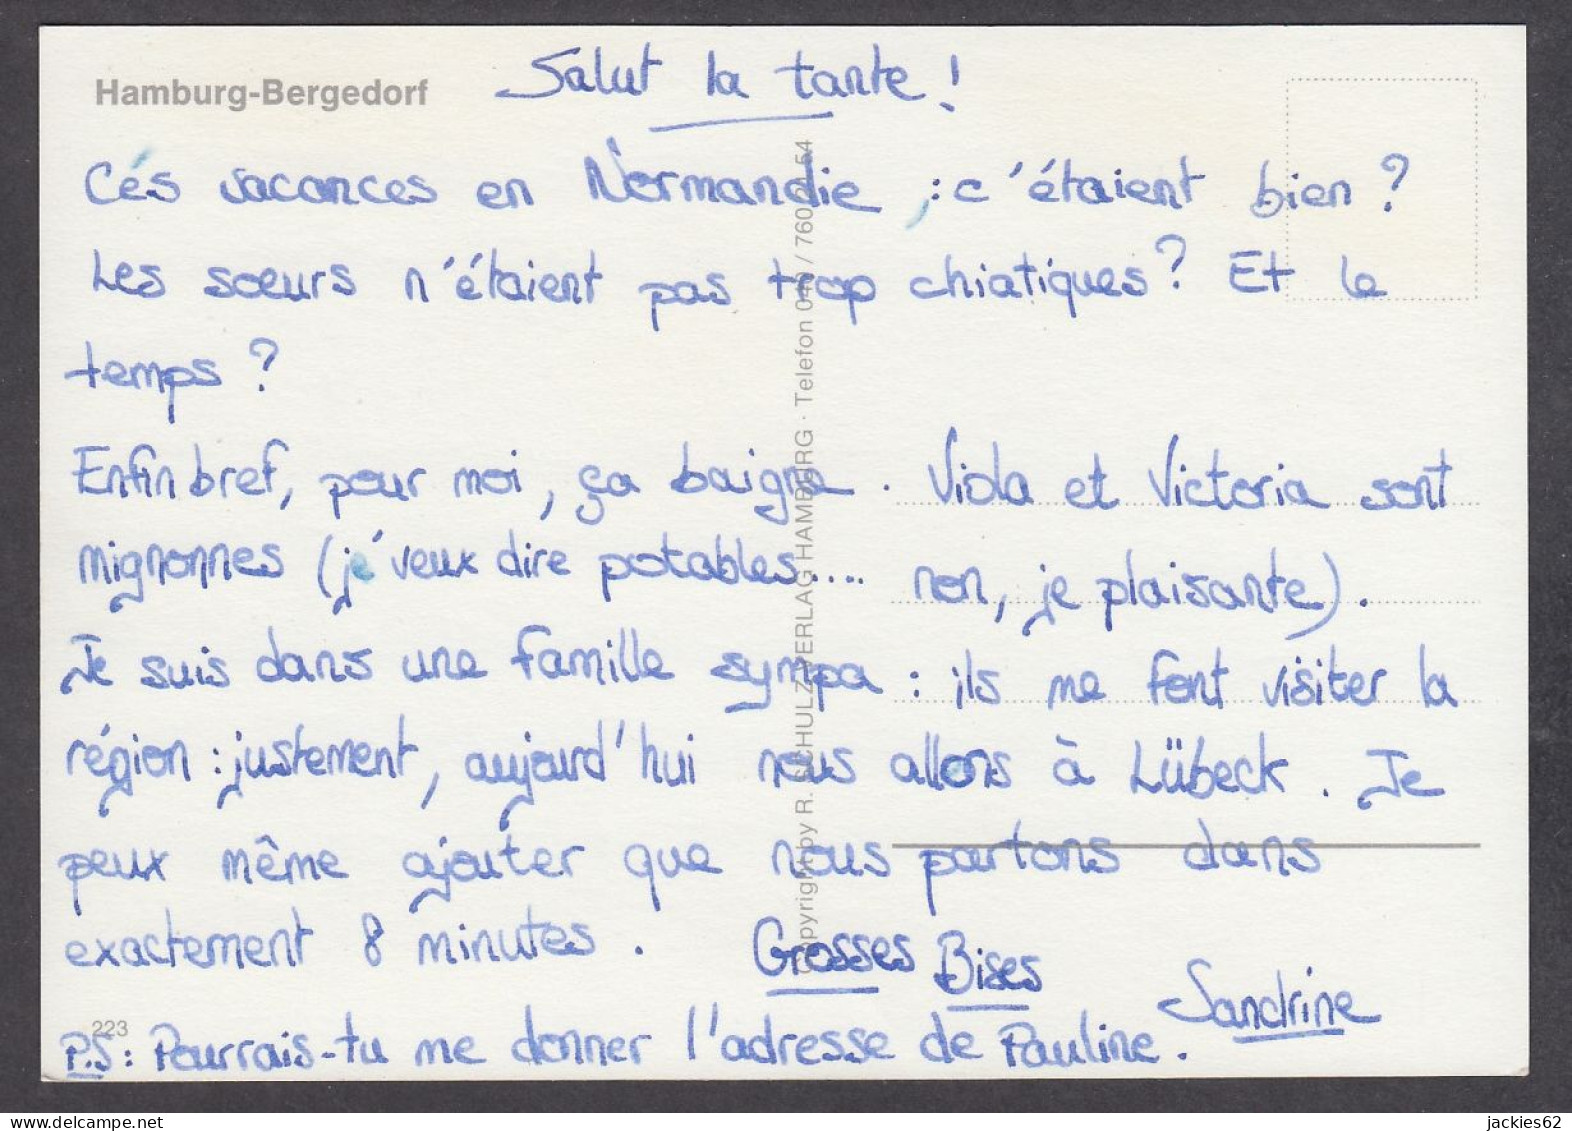 Hamburg-Bergedorf
Salut la tante !
Cés vacances en Normandie ,: c'étaient bien ?
Les soeurs n'étaient pas trop chiatiques ? Et le
temps ?
Enfin bref, pour moi, ça baigne. Viola et Victoria sont
mignonnes (je veux dire potables.... non, je plaisante).
Je suis dans une famille sympa : ils me font visiter la
région : justement, aujourd'hui nous allons à Lübeck. Je
peux même ajouter que nous partons dans
exactement 8 minutes. Grosses Bises
Sandrine
223
P.S : Pourrais-tu me donner l'adresse de Pauline.
Copyright by R. SCHULZ VERLAG HAMBURG · Telefon 040 / 760 54
delcampe.net
jackies62